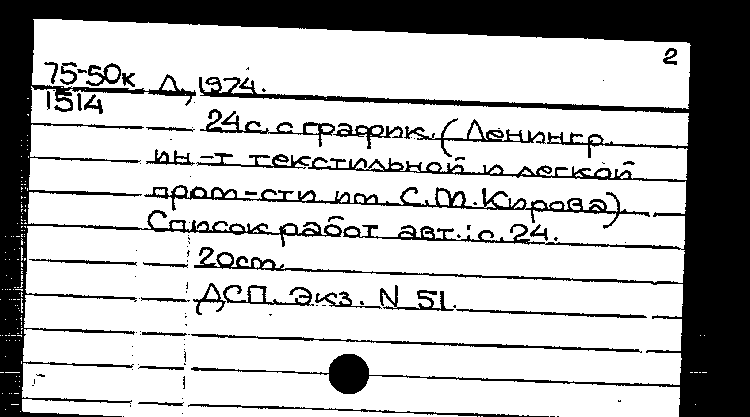 2
75-50к Л., 1974.
1514
24с. с график. (Ленингр.
ин-т текстильной и легкой
пром-сти им. С.М.Кирова).
Список работ авт.: с. 24.
20см.
ДСП. Экз. N 51.